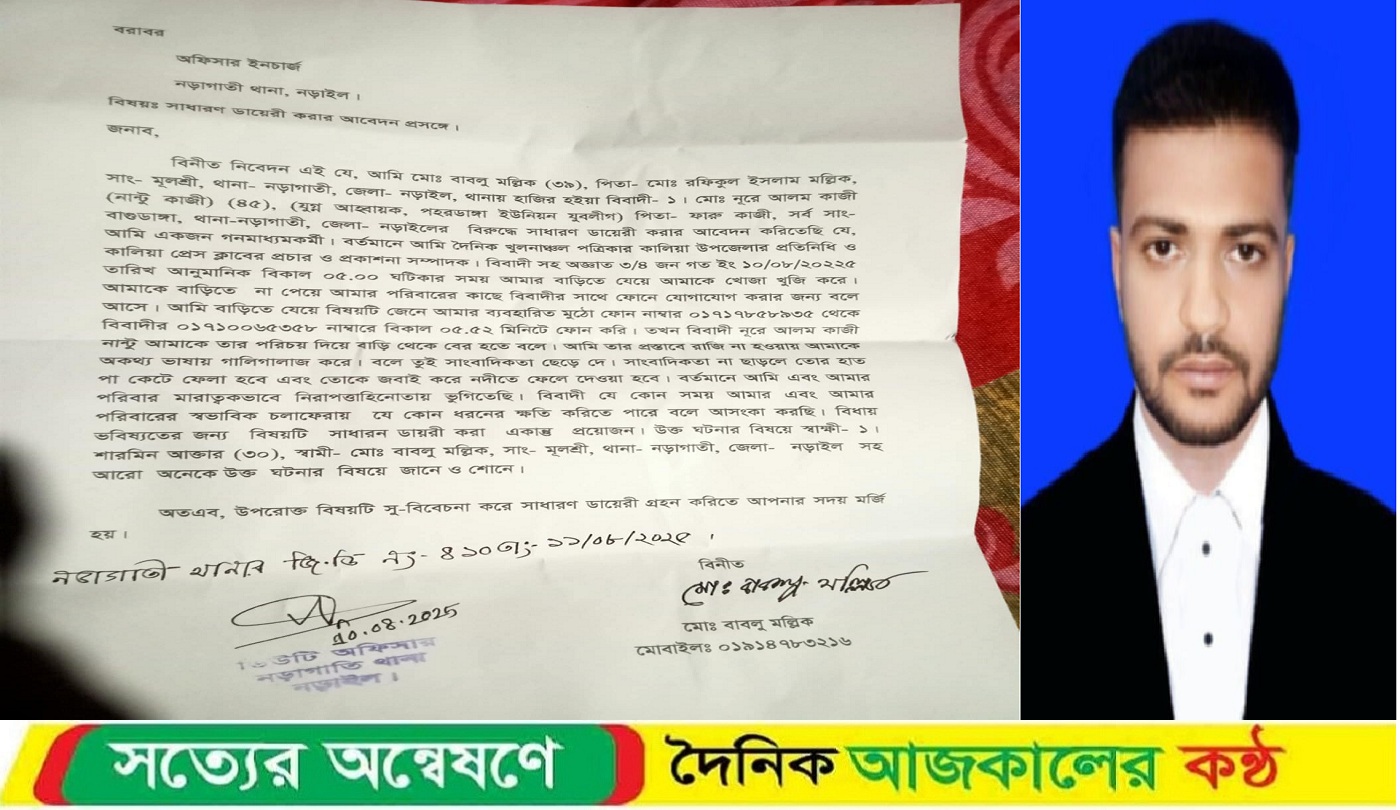 বরাবর
অফিসার ইনচার্জ
নড়াগাতী থানা, নড়াইল।
বিষয়ঃ সাধারণ ডায়েরী করার আবেদন প্রসঙ্গে।
জনাব,
বিনীত নিবেদন এই যে, আমি মোঃ বাবলু মল্লিক (৩৯), পিতা- মোঃ রফিকুল ইসলাম মল্লিক,
সাং- মূলশ্রী, থানা- নড়াগাতী, জেলা- নড়াইল, থানায় হাজির হইয়া বিবাদী- ১। মোঃ নূরে আলম কাজী
(নান্টু কাজী) (৪৫), (যুগ্ন আহ্বায়ক, পহরডাঙ্গা ইউনিয়ন যুবলীগ) পিতা- ফারু কাজী, সর্ব সাং-
বাগুডাঙ্গা, থানা-নড়াগাতী, জেলা- নড়াইলের বিরুদ্ধে সাধারণ ডায়েরী করার আবেদন করিতেছি যে,
আমি একজন গনমাধ্যমকর্মী। বর্তমানে আমি দৈনিক খুলনাঞ্চল পত্রিকার কালিয়া উপজেলার প্রতিনিধি ও
কালিয়া প্রেস ক্লাবের প্রচার ও প্রকাশনা সম্পাদক। বিবাদী সহ অজ্ঞাত ৩/৪ জন গত ইং ১০/০৮/২০২২৫
তারিখ আনুমানিক বিকাল ০৫.০০ ঘটিকার সময় আমার বাড়িতে যেয়ে আমাকে খোজা খুজি করে।
আমাকে বাড়িতে না পেয়ে আমার পরিবারের কাছে বিবাদীর সাথে ফোনে যোগাযোগ করার জন্য বলে
আসে। আমি বাড়িতে যেয়ে বিষয়টি জেনে আমার ব্যবহারিত মুঠো ফোন নাম্বার ০১৭১৭৮৫৮৯৩৫ থেকে
বিবাদীর ০১৭১০০৬৫৩৫৮ নাম্বারে বিকাল ০৫.৫২ মিনিটে ফোন করি। তখন বিবাদী নূরে আলম কাজী
নান্টু আমাকে তার পরিচয় দিয়ে বাড়ি থেকে বের হতে বলে। আমি তার প্রস্তাবে রাজি না হওয়ায় আমাকে
অকথ্য ভাষায় গালিগালাজ করে। বলে তুই সাংবাদিকতা ছেড়ে দে। সাংবাদিকতা না ছাড়লে তোর হাত
পা কেটে ফেলা হবে এবং তোকে জবাই করে নদীতে ফেলে দেওয়া হবে। বর্তমানে আমি এবং আমার
পরিবার মারাত্বকভাবে নিরাপত্তাহিনোতায় ভুগিতেছি। বিবাদী যে কোন সময় আমার এবং আমার
পরিবারের স্বভাবিক চলাফেরায় যে কোন ধরনের ক্ষতি করিতে পারে বলে আসংকা করছি। বিধায়
ভবিষ্যতের জন্য বিষয়টি সাধারন ডায়রী করা একান্ত প্রয়োজন। উক্ত ঘটনার বিষয়ে স্বাক্ষী- ১।
শারমিন আক্তার (৩০), স্বামী- মোঃ বাবলু মল্লিক, সাং- মূলশ্রী, থানা- নড়াগাতী, জেলা- নড়াইল সহ
আরো অনেকে উক্ত ঘটনার বিষয়ে জানে ও শোনে।
অতএব, উপরোক্ত বিষয়টি সু-বিবেচনা করে সাধারণ ডায়েরী গ্রহন করিতে আপনার সদয় মর্জি
হয়।
নড়াগাতী থানার জি.ডি নং- ৪১০ তাং- ১১/০৮/২০২৫।
বিনীত
মোঃ বাবলু মল্লিক
10.08.2025
মোঃ বাবলু মল্লিক
মোবাইলঃ ০১৯১৪৭৮৩২১৬
ডিউটি অফিসার
নড়াগাতি থানা
নড়াইল।
সত্যের অন্বেষণে দৈনিক আজকালের কন্ঠ